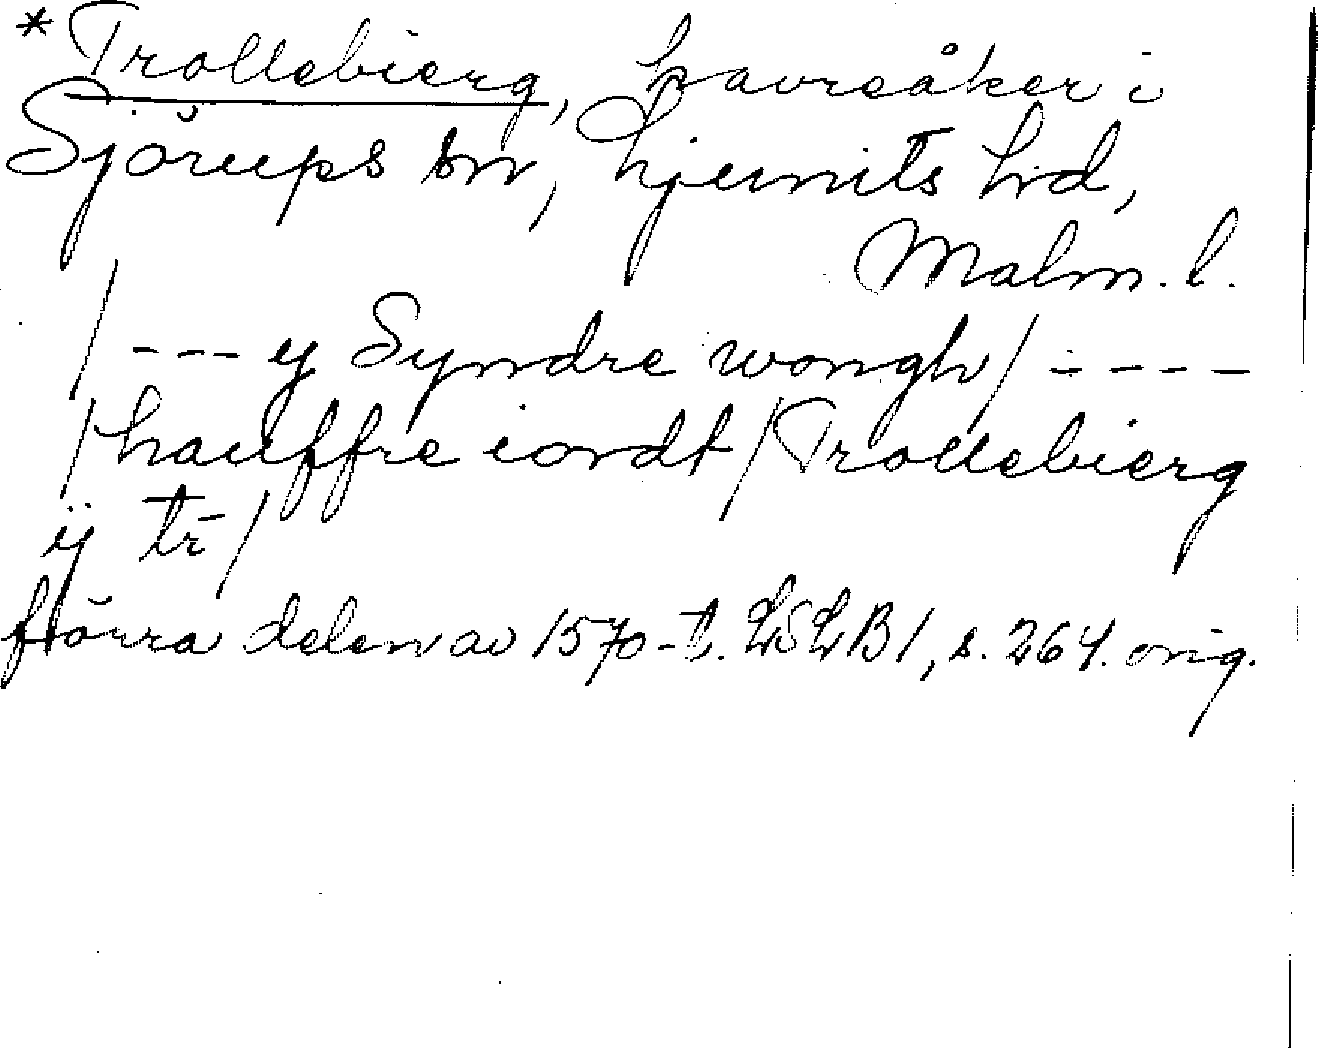 *Trollebierg, havreåker i
Sjörups sn, Ljunits hd,
Malm. l.
/ --- y Syndre wongh / ----
/ hauffre iordt / Trollebierg
ij tr /
förra delen av 1570-t. LSLB 1, s. 264. orig.